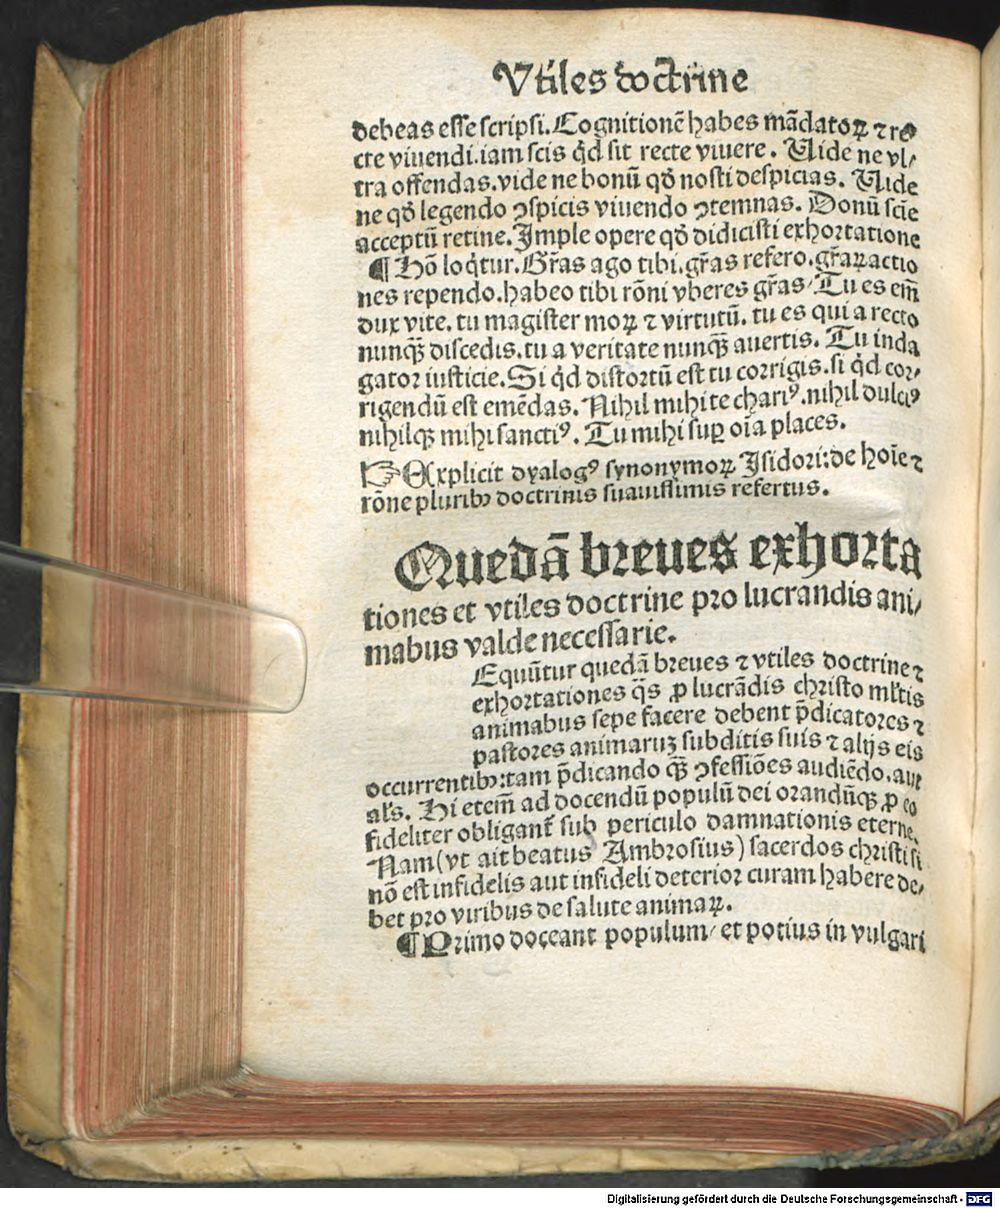 Vtiles doctrine
debeas esse scripsi. Cognitionē habes mādatoꝝ ⁊ re
cte viuendi. iam scis qd̓ sit recte viuere. Uide ne vl/
tra offendas. vide ne bonū qd̓ nosti despicias. Uide
ne qd̓ legendo ꝯspicis viuendo ꝯtemnas. Donū scīe
acceptū retine. Imple opere qd̓ didicisti exhortatione
¶ Hō loqͥtur. Gr̄as ago tibi. gr̄as refero. gr̄aꝝ actio
nes rependo. habeo tibi rōni vberes gr̄as/ Tu es em̄
dux vite. tu magister moꝝ ⁊ virtutū. tu es qui a recto
nunqꝫ discedis. tu a veritate nunqꝫ auertis. Tu inda
gator iusticie. Si qd̓ distortū est tu corrigis. si qd̓ cor/
rigendū est emēdas. Nihil mihi te chariꝰ. nihil dulciꝰ
nihilqꝫ mihi sanctiꝰ. Tu mihi suꝑ oīa places.
☞ Explicit dyalogꝰ synonymoꝝ Isidori: de hoīe ⁊
rōne pluribꝫ doctrinis suauissimis refertus.
Quedā breues exhorta
tiones et vtiles doctrine pro lucrandis ani/
mabus valde necessarie.
Equūtur quedā breues ⁊ vtiles doctrine ⁊
exhortationes qͣs ꝓ lucrādis christo ml̓tis
animabus sepe facere debent p̄dicatores ⁊
pastores animaruꝫ subditis suis ⁊ alijs eis
occurrentibꝫ: tam p̄dicando qꝫ ꝯfessiōes audiēdo. aut
al̓s. Hi etem̄ ad docendū populū dei orandūqꝫ ꝓ eo
fideliter obligant᷑ sub periculo damnationis eterne.
Nam (vt ait beatus Ambrosius) sacerdos christi si
nō est infidelis aut infideli deterior curam habere de/
bet pro viribus de salute animaꝝ.
¶ Primo doceant populum/ et potius in vulgari
Digitalisierung gefördert durch die Deutsche Forschungsgemeinschaft - DFG